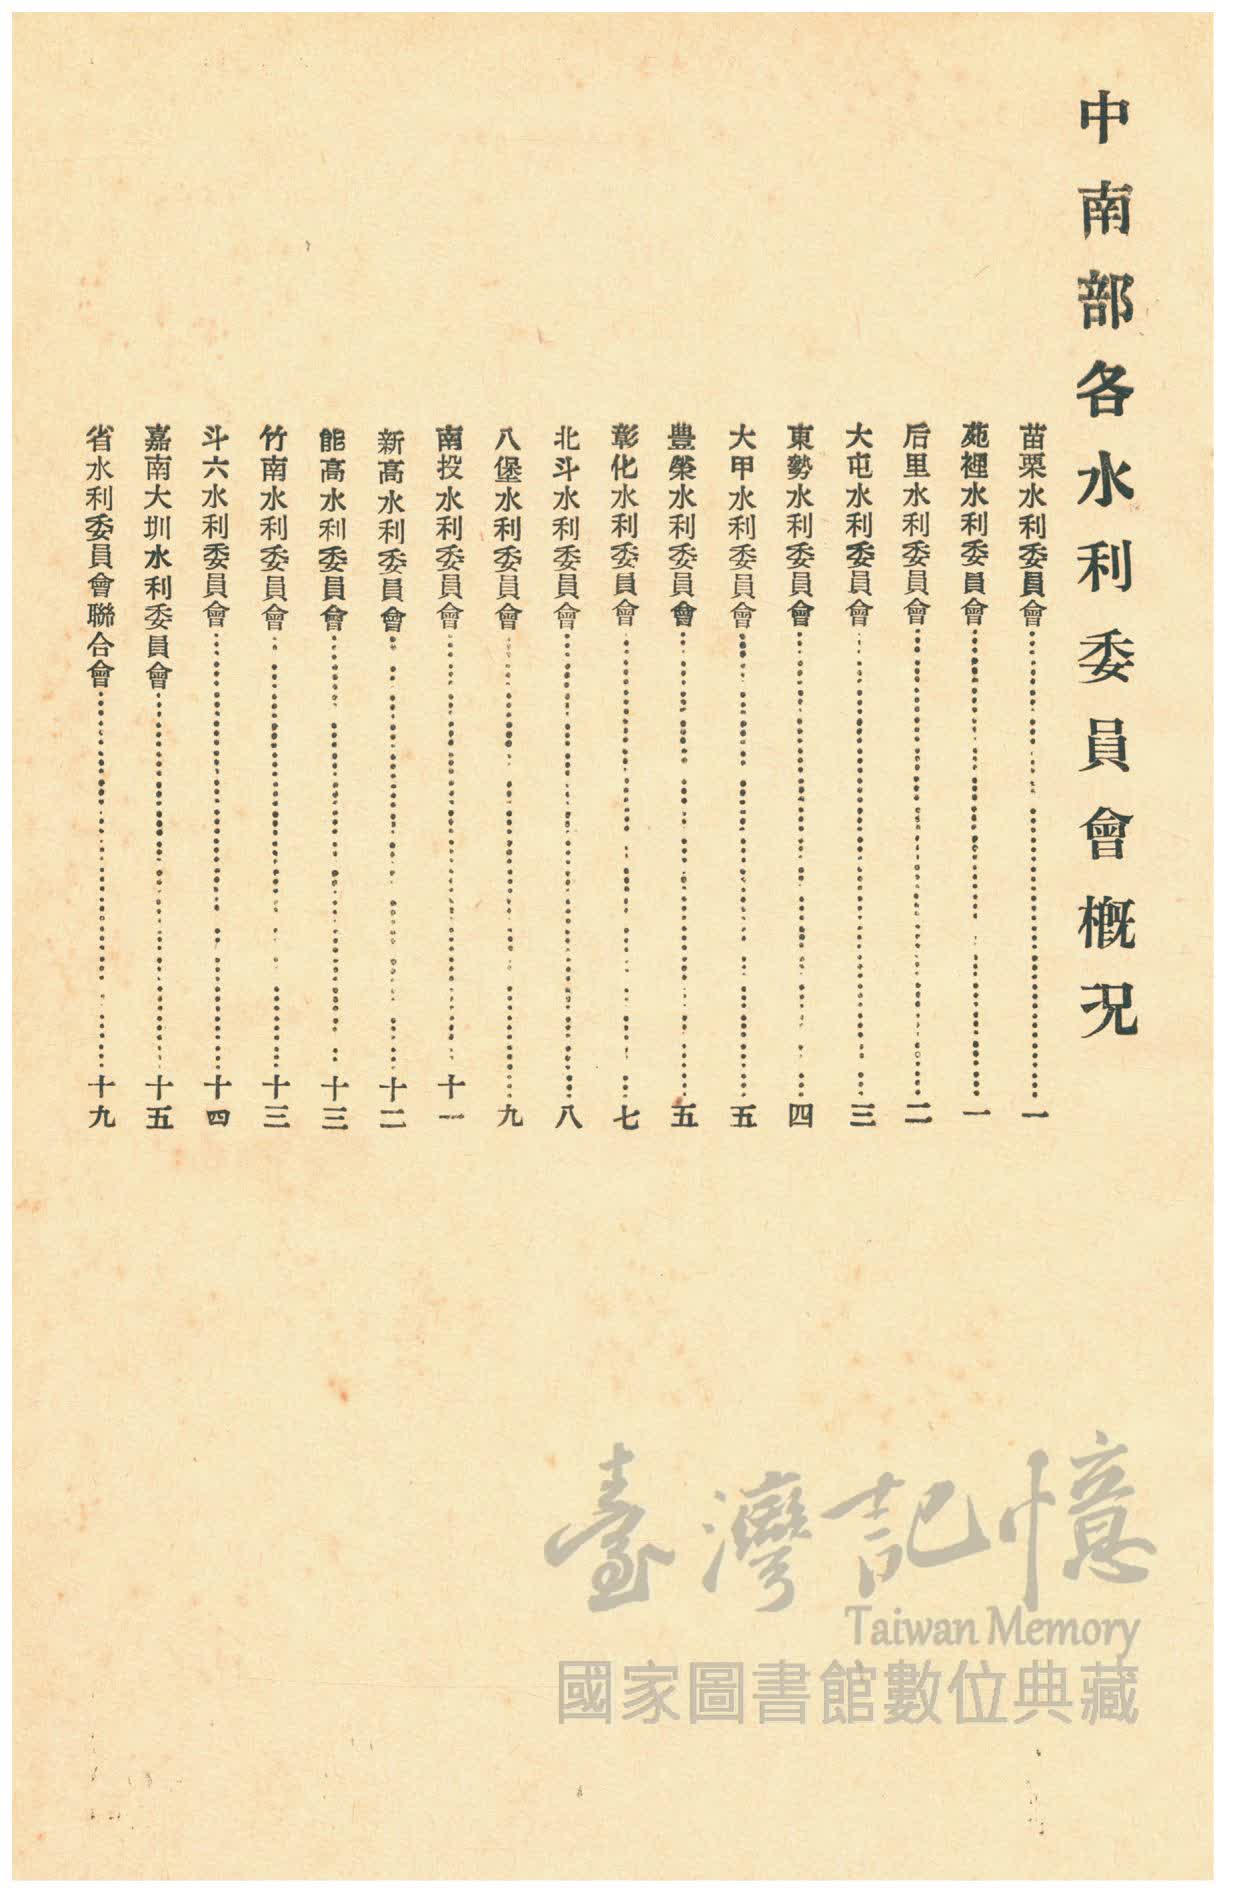 中南部各水利委員會概況
苗栗水利委員會………一
苑裡水利委員會………一
后里水利委員會………二
大屯水利委員會………三
東勢水利委員會………四
大甲水利委員會………五
豐榮水利委員會………五
彰化水利委員會………七
北斗水利委員會………八
八堡水利委員會………九
南投水利委員會………十一
新高水利委員會………十二
能高水利委員會………十三
竹南水利委員會………十三
斗六水利委員會………十四
嘉南大圳水利委員會………十五
省水利委員會聯合會………十九
臺灣記憶
Taiwan Memory
國家圖書館數位典藏